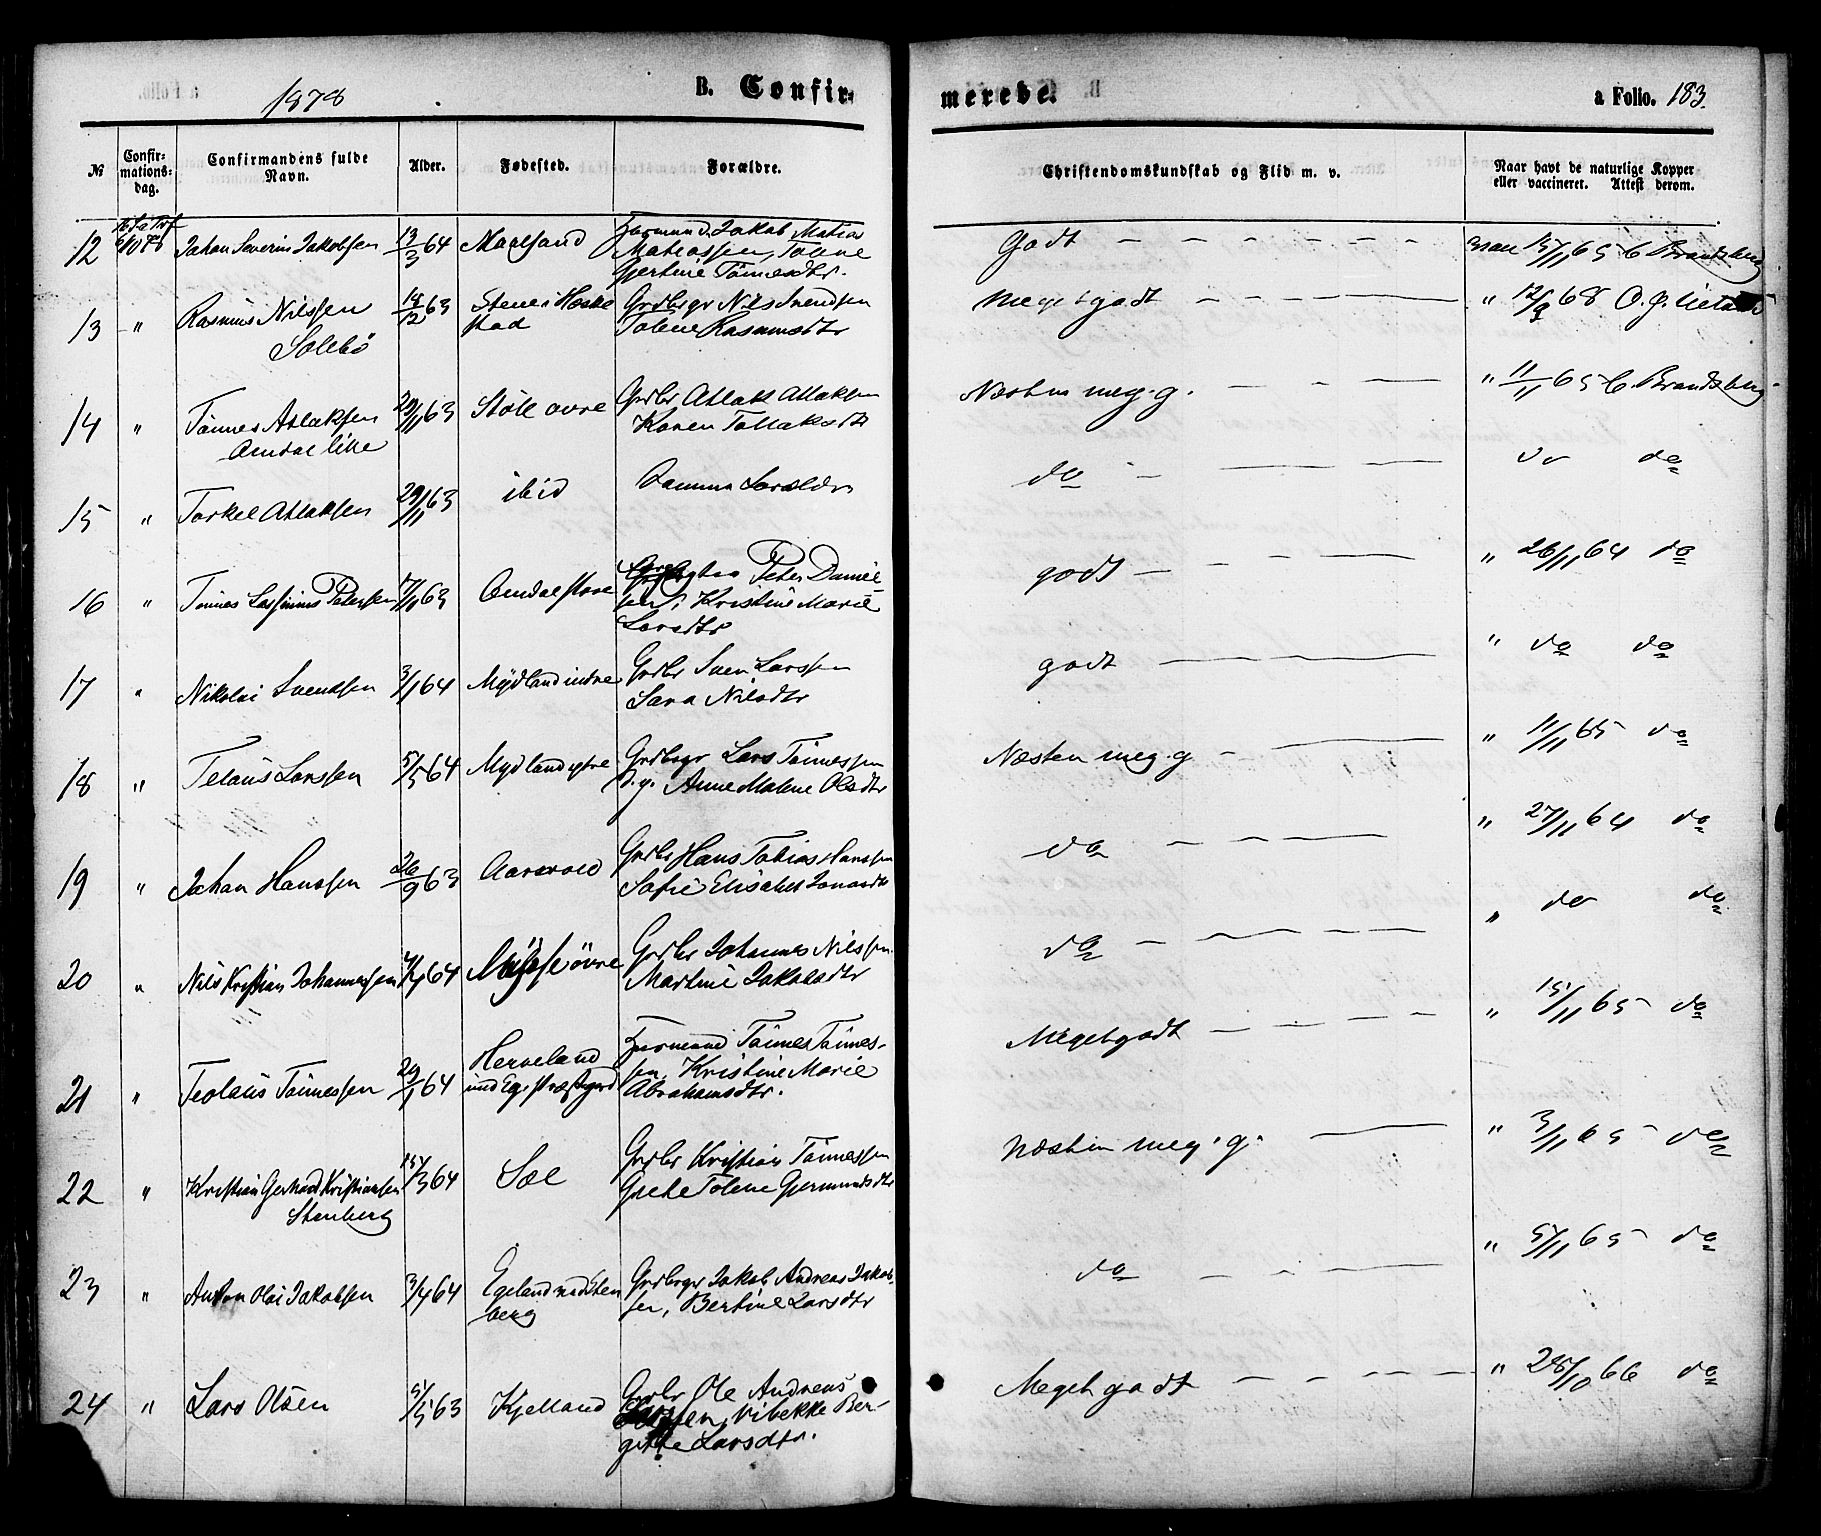 1878
B. Confir-
merede.
a Folio. 183.
№
Confir-
mations-
dag.
Confirmandens fulde
Navn.
Alder.
Fødested.
Forældre.
Christendomskundskab og Flid m. v.
Naar havt de naturlige Kopper
eller vaccineret. Attest derom.
12 Johan Severin Jakobsen 13/3 64 Maalsand Huusmand Jakob Matias
Mathiassen, Tolene
Gjertine Tönnesdtr. Godt — — — — vac 15/11 65 C Brandsberg
13 " Rasmus Nilssen
Solebö 18/12 63 Stene i Heske
stad Grdbrgr Nils Svendsen
Tolene Rasmusdtr Meget godt — — — — " 12/9 68
14 " Tönnes Atlaksen
Omdal lille 29/11 63 Stöle övre Grdbr Atlak Atlaksen
Karen Tollaksdtr Næsten meg. g. — — — — " 11/11 65 C Brandsberg
15 " Torkel Atlaksen 29/11 63 ibid Samme Foræld. do — — — — do
16 " Tönnes Peterssen 7/11 63 Omdal store Peter Daniel
sen, Kristine Marie
Larsdtr godt — — — " 26/11 64 do
17 " Nikolai Svendsen 3/1 64 Mydland indre Grdbr Sven Larssen
Sara Nilsdtr godt — — — — " do do
18 " Telaus Larssen 5/5 64 Mydland ytre Grdbrgr Lars Tönnessen
d.y. Anne Malene Olsdtr Næsten meg. g — — — " 11/11 65 do
19 " Johan Hanssen 26/9 63 Aarsvold Grdbr Hans Tobias Hanssen
Sofie Elisabet Jonasdtr do — — — — " 27/11 64 do
20 " Nils Kristian Johannessen 64 Mysse övre Grdbr Johannes Nilssen
Martine Jakobsdtr do — — — — " do do
21 " Teolaus Tönnessen 29/1 64 Herveland
und Eg. præstgrd Huusmand Tönnes Tönnes-
sen, Kristine Marie
Abrahamsdtr. Meget godt — — — — " 15/11 65 do
22 " Kristian Gerhard Kristiansen
Stenberg 15/3 64 Sæl Grdbr Kristian Tönnessen
Grete Tolene Gjermundsdtr Næsten meg. g. — — " 3/11 65 do
23 " Anton Olai Jakobsen 3/4 64 Egeland und Sten
berg Grdbrgr Jakob Andreas Jakob-
sen, Bertine Larsdtr do — — — — " 5/11 65 do
24 " Lars Olsen 5/5 63 Kjelland Grdbr Ole Andreas
Larssen, Vibekke Ber-
gitte Larsdtr. Meget godt — — — — " 28/10 66 do